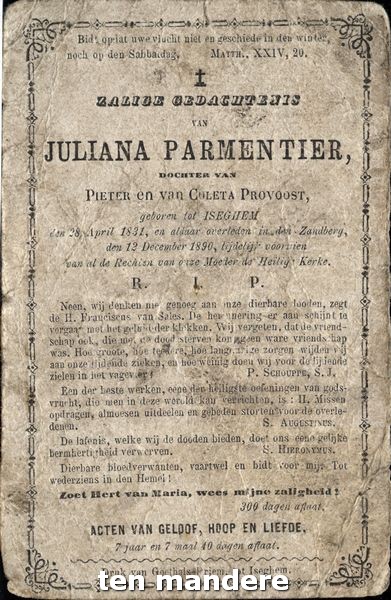 Bidt opdat uwe vlucht niet en geschiede in den winter,
noch op den Sabbadag. Matth., XXIV, 20.
ZALIGE GEDACHTENIS
VAN
JULIANA PARMENTIER,
DOCHTER VAN
Pieter en van Coleta Provoost,
geboren tot ISEGHEM
den 28 April 1831, en aldaar overleden in den Zandberg,
den 12 December 1890, tijdelijk voorzien
van al de Rechten van onze Moeder de Heilige Kerke.
R. I. P.
Neen, wij denken niet genoeg aan onze dierbare dooden, zegt
de H. Franciscus van Sales. De herinnering er aan schijnt te
vergaan met het geluid der klokken. Wij vergeten, dat de vriend-
schap ook, die met de dood sterven kon, geen ware vriendschap
was. Hoe groote, hoe teedere, hoe lange zorgen wijden wij
aan onze lijdende zieken, en hoe weinig doen wij voor de lijdende
zielen in het vagevuur! P. Schouppe, S. J.
Een der beste werken, eene der heiligste oefeningen van gods-
vrucht, die men in deze wereld kan verrichten, is: H. Missen
opdragen, almoesen uitdeelen en gebeden storten voor de overle-
denen. S. Augustinus.
De lafenis, welke wij de dooden bieden, doet ons eene gelijke
bermhertigheid verwerven. S. Hieronymus.
Dierbare bloedverwanten, vaartwel en bidt voor mij. Tot
wederziens in den Hemel!
Zoet Hert van Maria, wees mijne zaligheid!
300 dagen aflaat.
ACTEN VAN GELOOF, HOOP EN LIEFDE.
7 jaar en 7 maal 40 dagen aflaat.
Druk van Goethals-Priem, tot Iseghem.
ten mandere